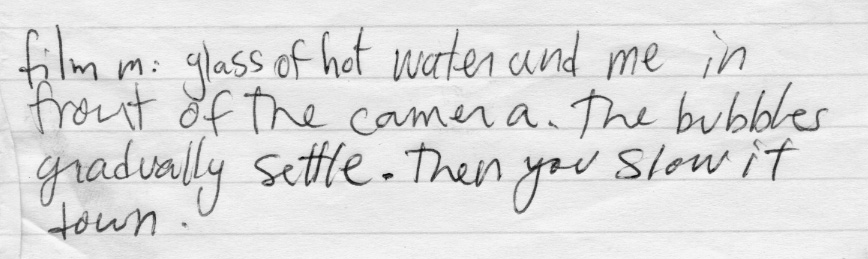 film m: glass of hot water and me in
front of the camera. The bubbles
gradually settle. Then you slow it
down.